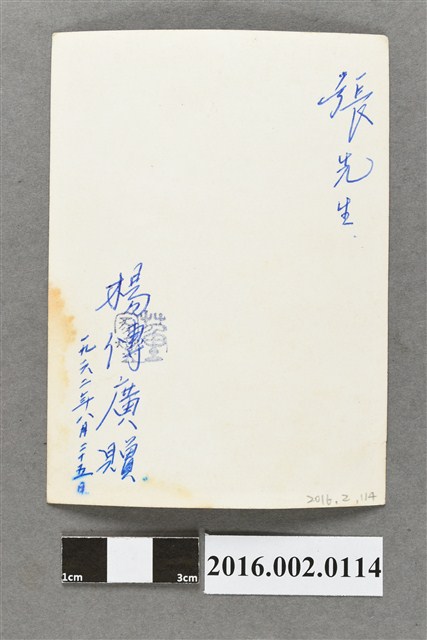 張先生.
楊傳廣贈
一九六二年八月二十五日
2016.2.114
1cm
3cm
2016.002.0114